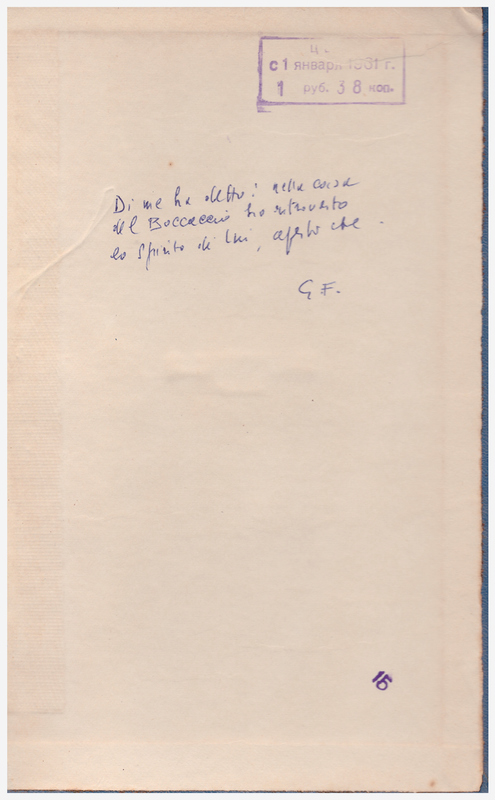 Ц.
с 1 января 1961 г.
1 руб. 38 коп.
Di me ha detto: nella casa
del Boccaccio ho ritrovato
lo spirito di lui,
G F.
15